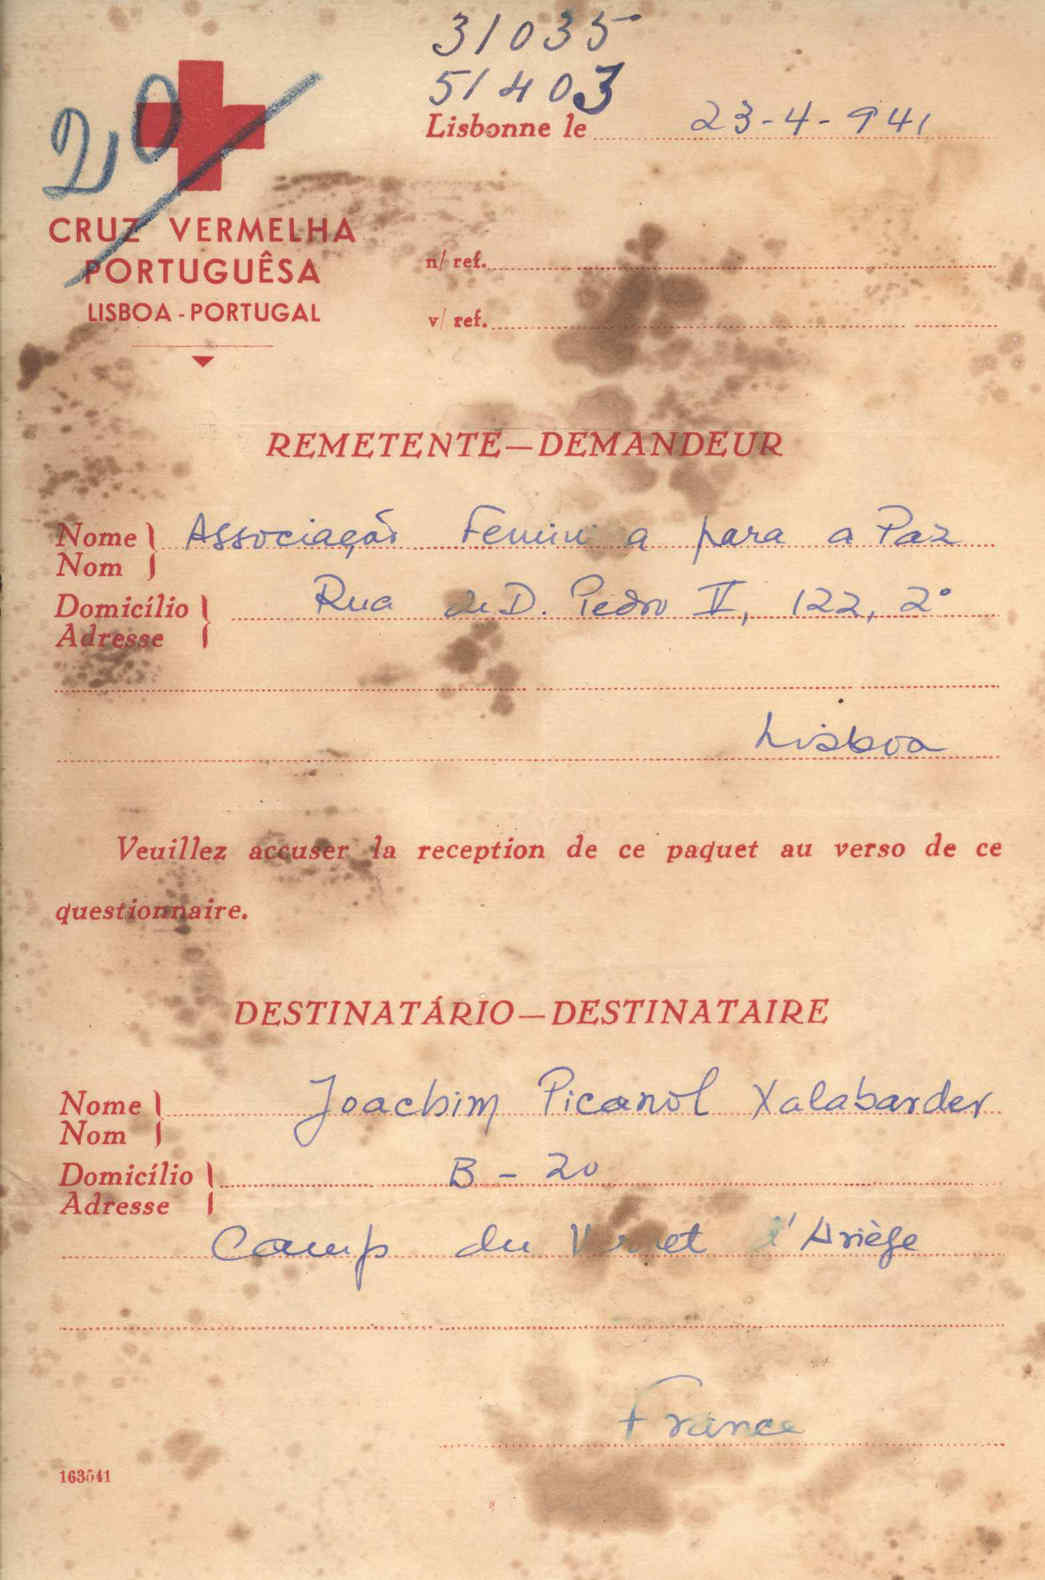 31035
51403
20
Lisbonne le 23-4-941
CRUZ VERMELHA
PORTUGUÊSA
LISBOA - PORTUGAL
n/ ref.
v/ ref.
REMETENTE—DEMANDEUR
Nome Associação Feminina para a Paz
Nom
Domicílio Rua de D. Pedro II, 122, 2º
Adresse
Lisboa
Veuillez accuser la reception de ce paquet au verso de ce
questionnaire.
DESTINATÁRIO—DESTINATAIRE
Nome Joachim Picanol Xalabarder
Nom
Domicílio B - 20
Adresse
Camp du Vernet d'Ariège
France
163541